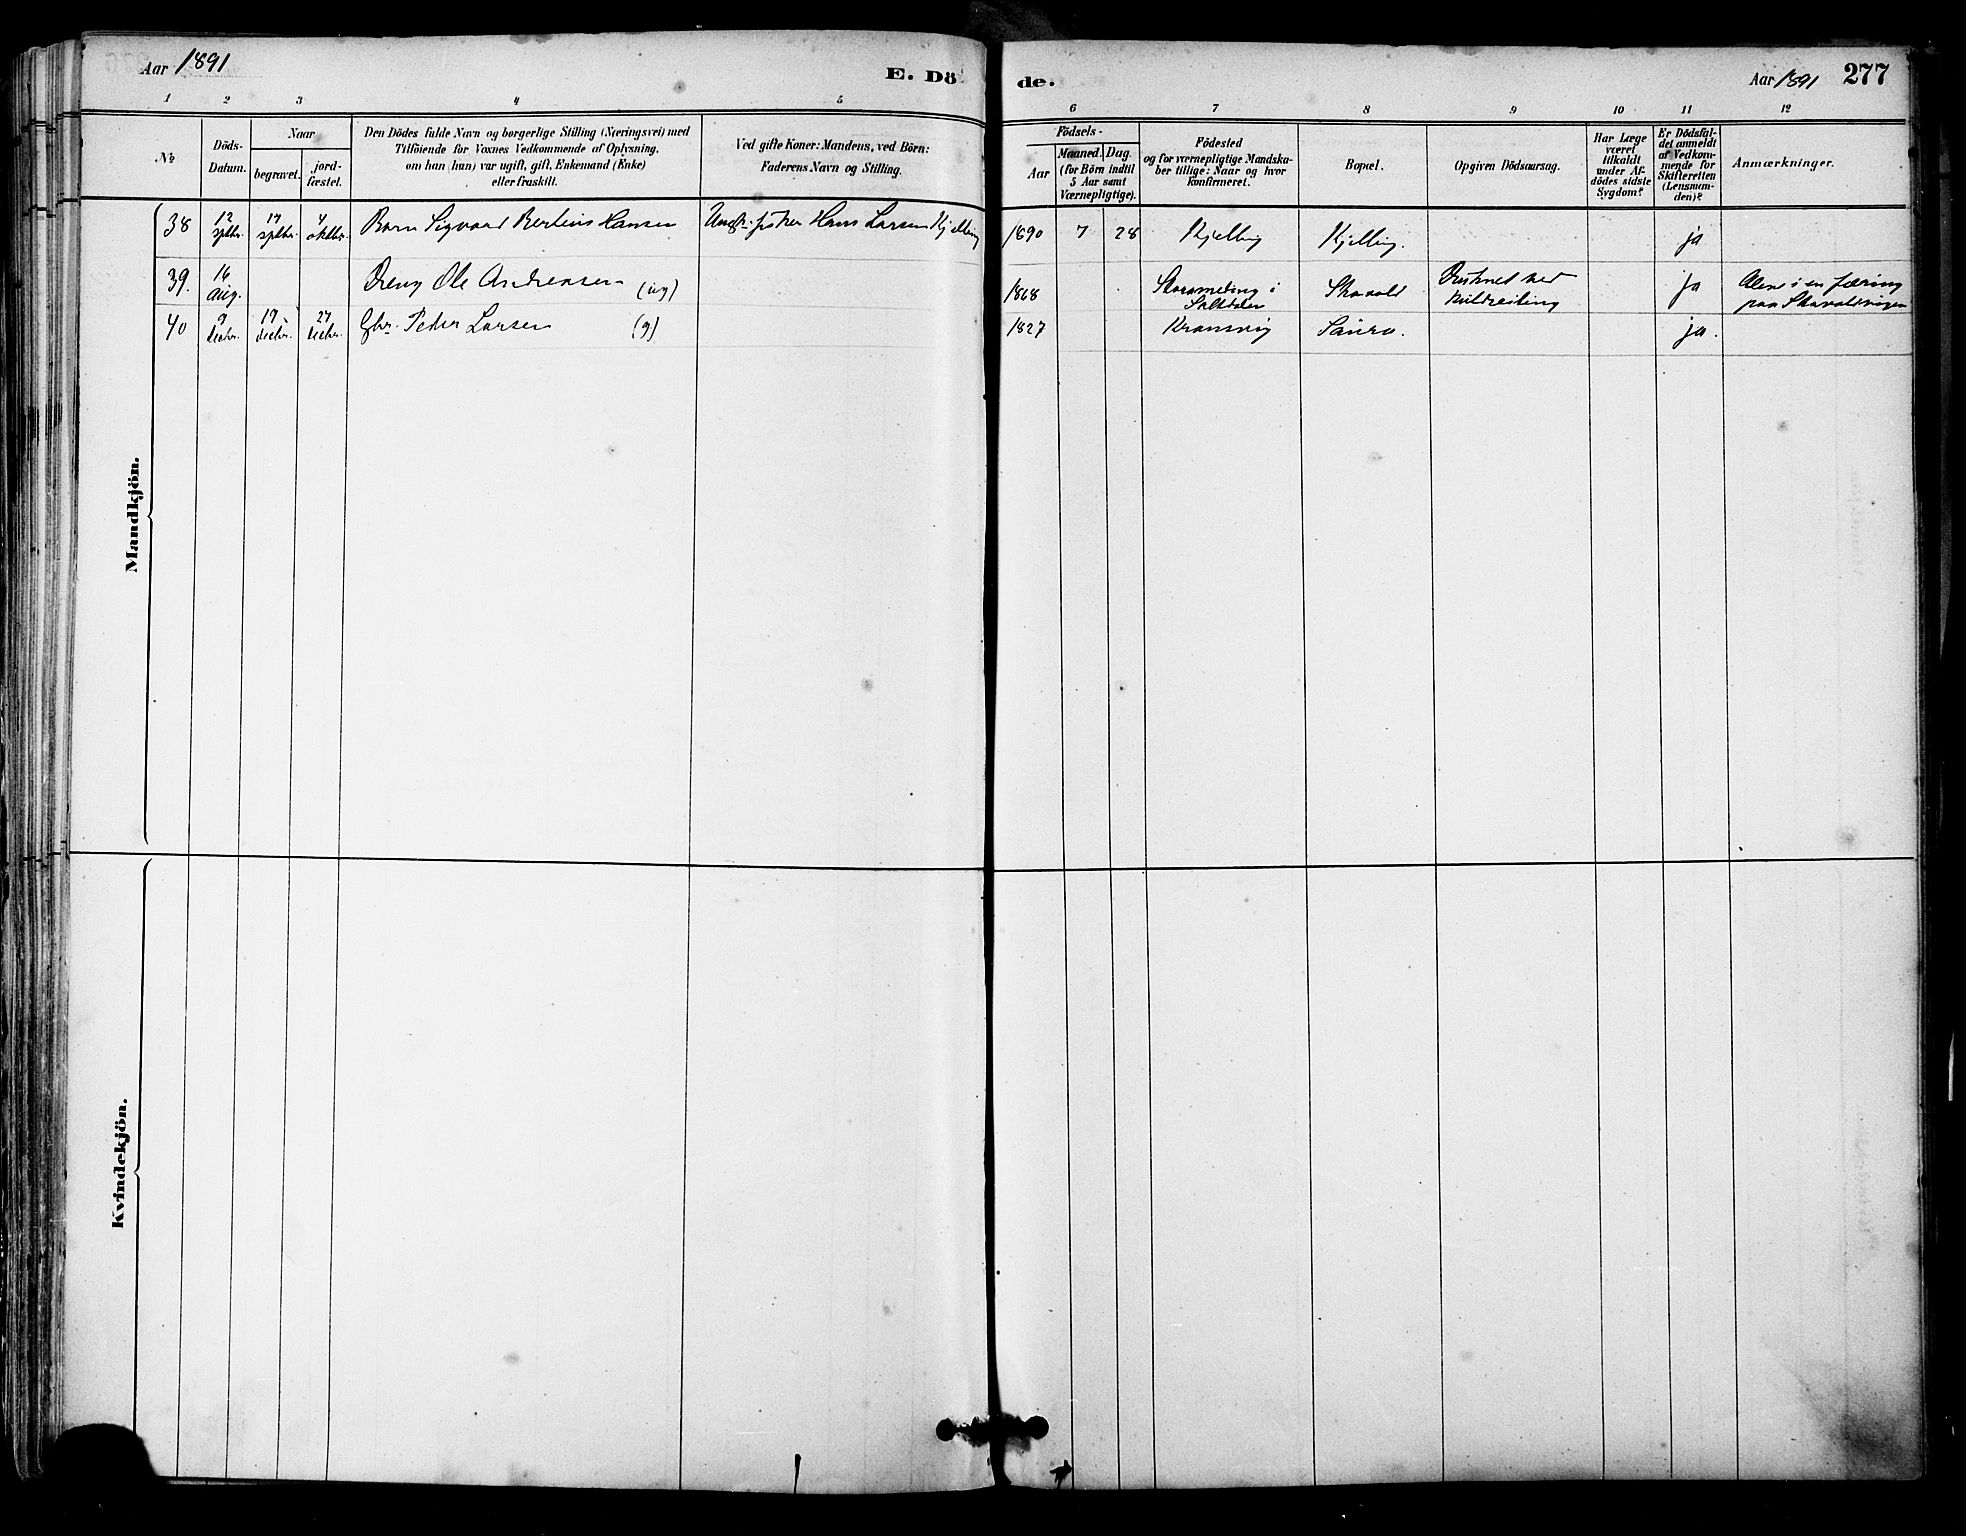 Aar 1891
E. Dö
de.
Aar 1891
277
1 2 3 4 5 6 7 8 9 10 11 12
№
Döds-
Datum.
Naar
begravet.
jord-
fæstet.
Den Dödes fulde Navn og borgerlige Stilling (Næringsvei) med
Tilföiende for Voxnes Vedkommende af Oplysning,
om han (hun) var ugift, gift, Enkemand (Enke)
eller fraskilt.
Ved gifte Koner: Mandens, ved Börn:
Faderens Navn og Stilling.
Födsels-
Aar
Maaned. Dag.
(for Börn indtil
5 Aar samt
Værnepligtige).
Födested
og for værnepligtige Mandska-
ber tillige: Naar og hvor
Konfirmeret.
Bopæl.
Opgiven Dödsaarsag.
Har Læge
været
tilkaldt
under Af-
dödes sidste
Sygdom?
Er Dödsfal-
det anmeldt
af Vedkom-
mende for
Skifteretten
(Lensman-
den)?
Anmærkninger.
Mandkjön.
38 12 septbr. 17 septbr. 4 oktbr. Barn Sigvard Bertius Hansen Hans Larsen Kjelling 1890 7 28 Kjelling Kjelling. ja
39. 16 Aug. Dreng Ole Andreassen (ug) 1868 i Saltdalen Skavold Druknet ved ja Alene i en færing
paa Skavoldvigen
40 9 decbr. 19 decbr. 27 decbr. Gbr. Peder Larsen (g) 1827 Kransvig Saura. ja.
Kvindekjön.